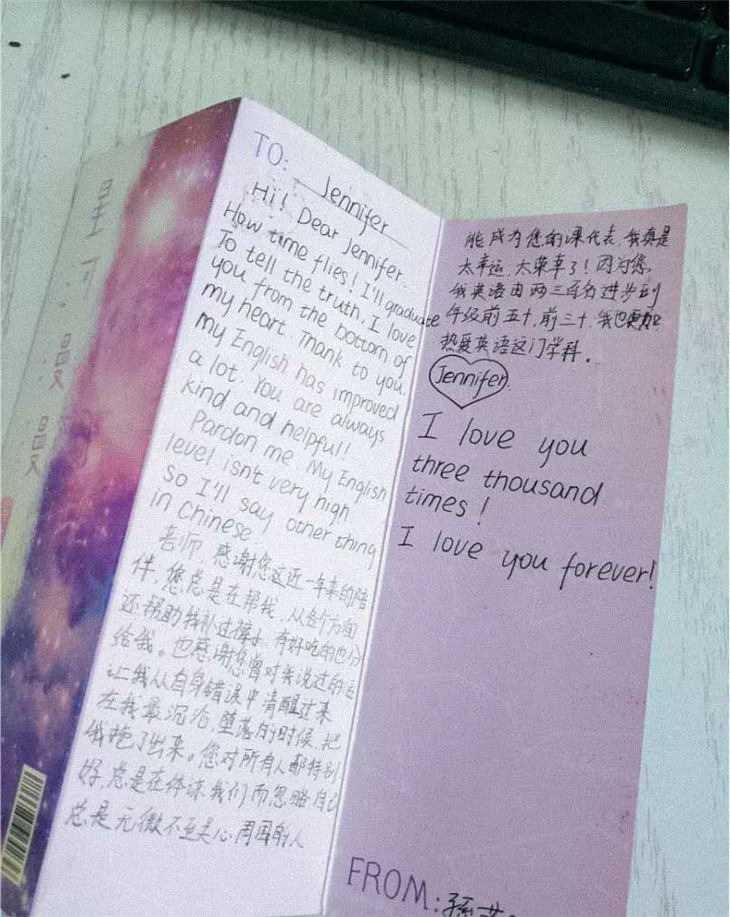 TO: Jennifer
Hi! Dear Jennifer.
How time flies! I'll graduate
To tell the truth, I love
you from the bottom of
my heart. Thank to you.
my English has improved
a lot. You are always
kind and helpful!
Pardon me. My English
level isn't very high
so I'll say other thing
in Chinese
老师,感谢您这近一年来的陪
伴,您总是在帮我,从各个方面
还帮助我补过裤子,有好吃的也分
给我。也感谢您曾对我说过的话
让我从自身错误中清醒过来
在我最沉沦,堕落的时候,把
我拖了出来。您对所有人都特别
好,总是在体谅我们而忽略自己
总是无微不至关心周围的人
能成为您的课代表,我真是
太幸运,太荣幸了!因为您,
我英语由两三百名进步到
年级前五十,前三十,我也更加
热爱英语这门学科。
Jennifer
I love you
three thousand
times!
I love you forever!
FROM: 孙